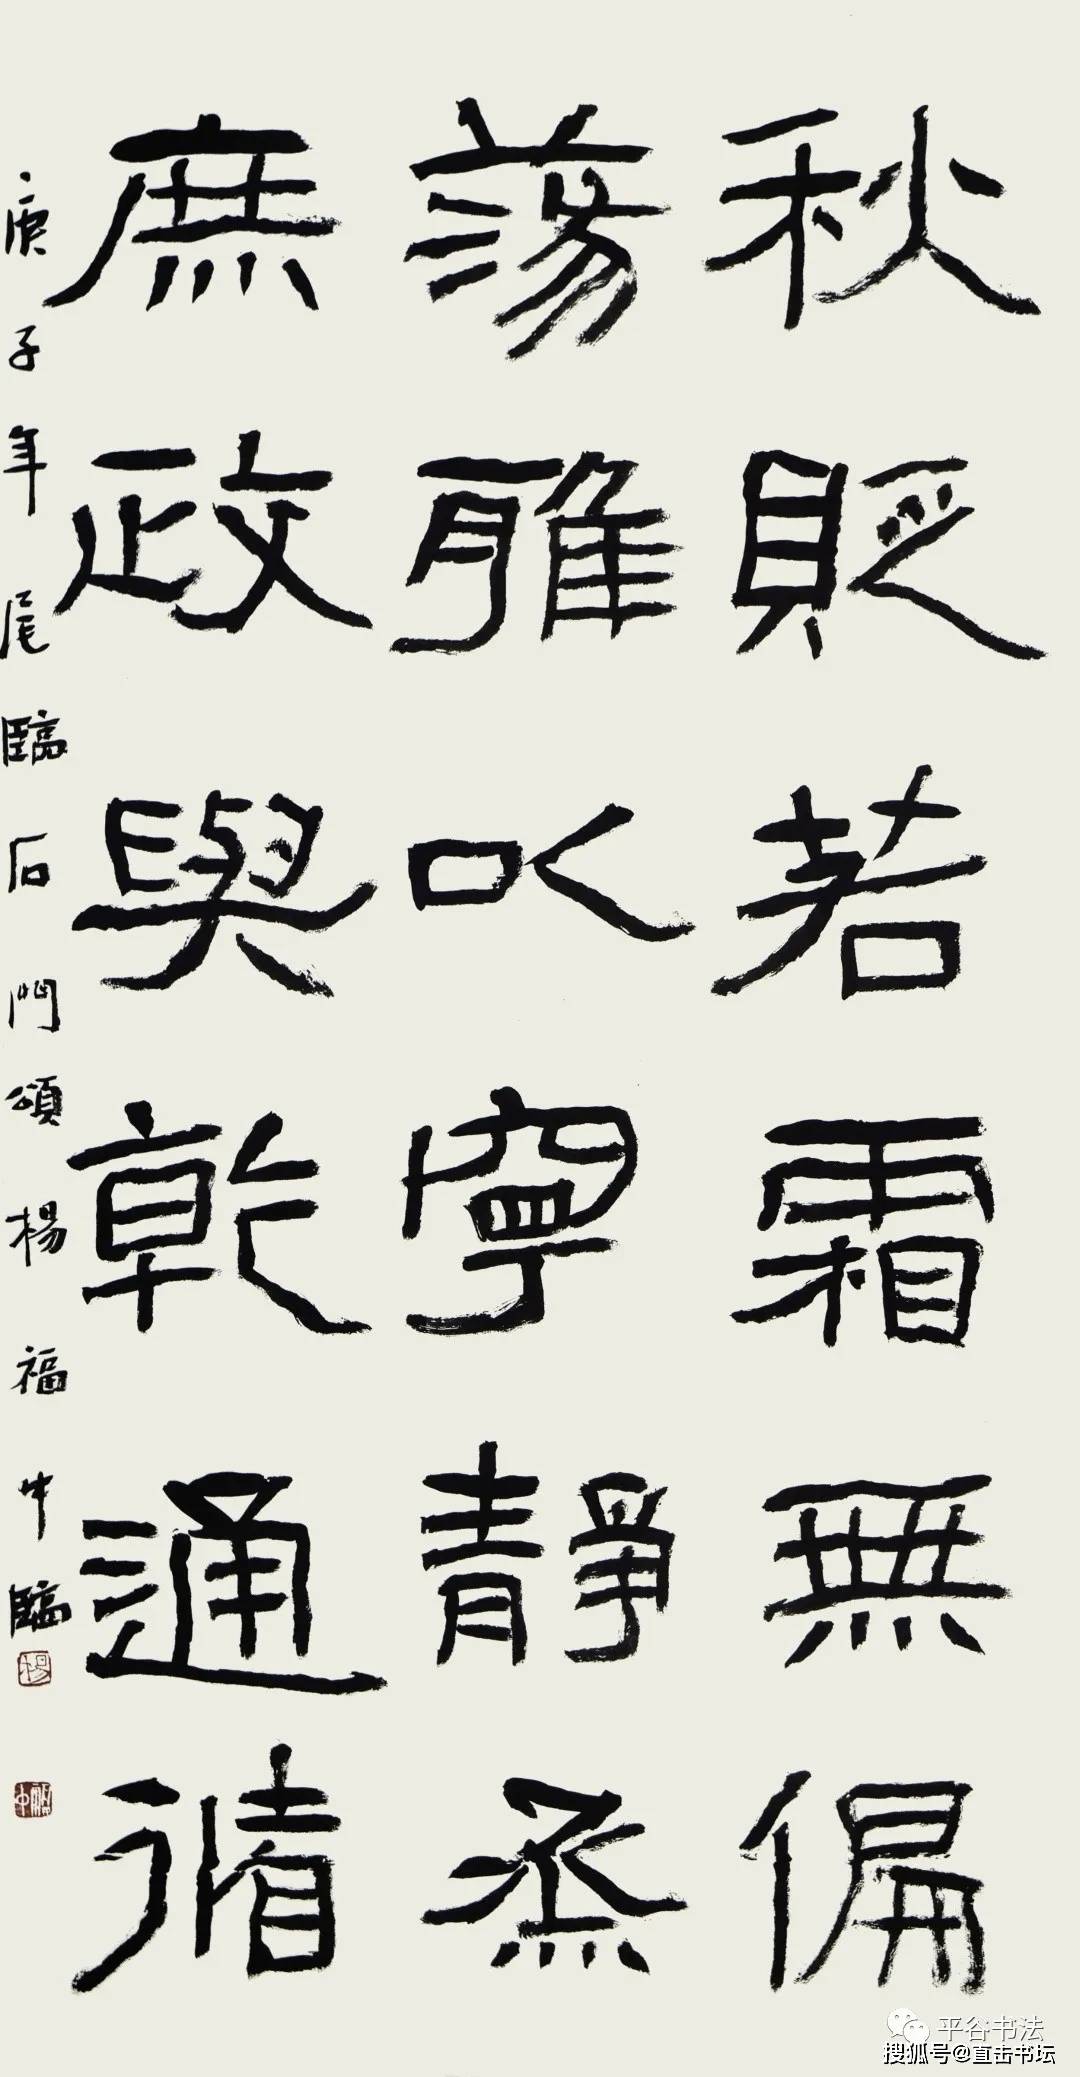 秋貶若霜無偏
蕩雅以寧靜烝
庶政與乾通循
庚子年尾臨石門頌楊福中臨
楊
福中
平谷书法
搜狐号@直击书坛